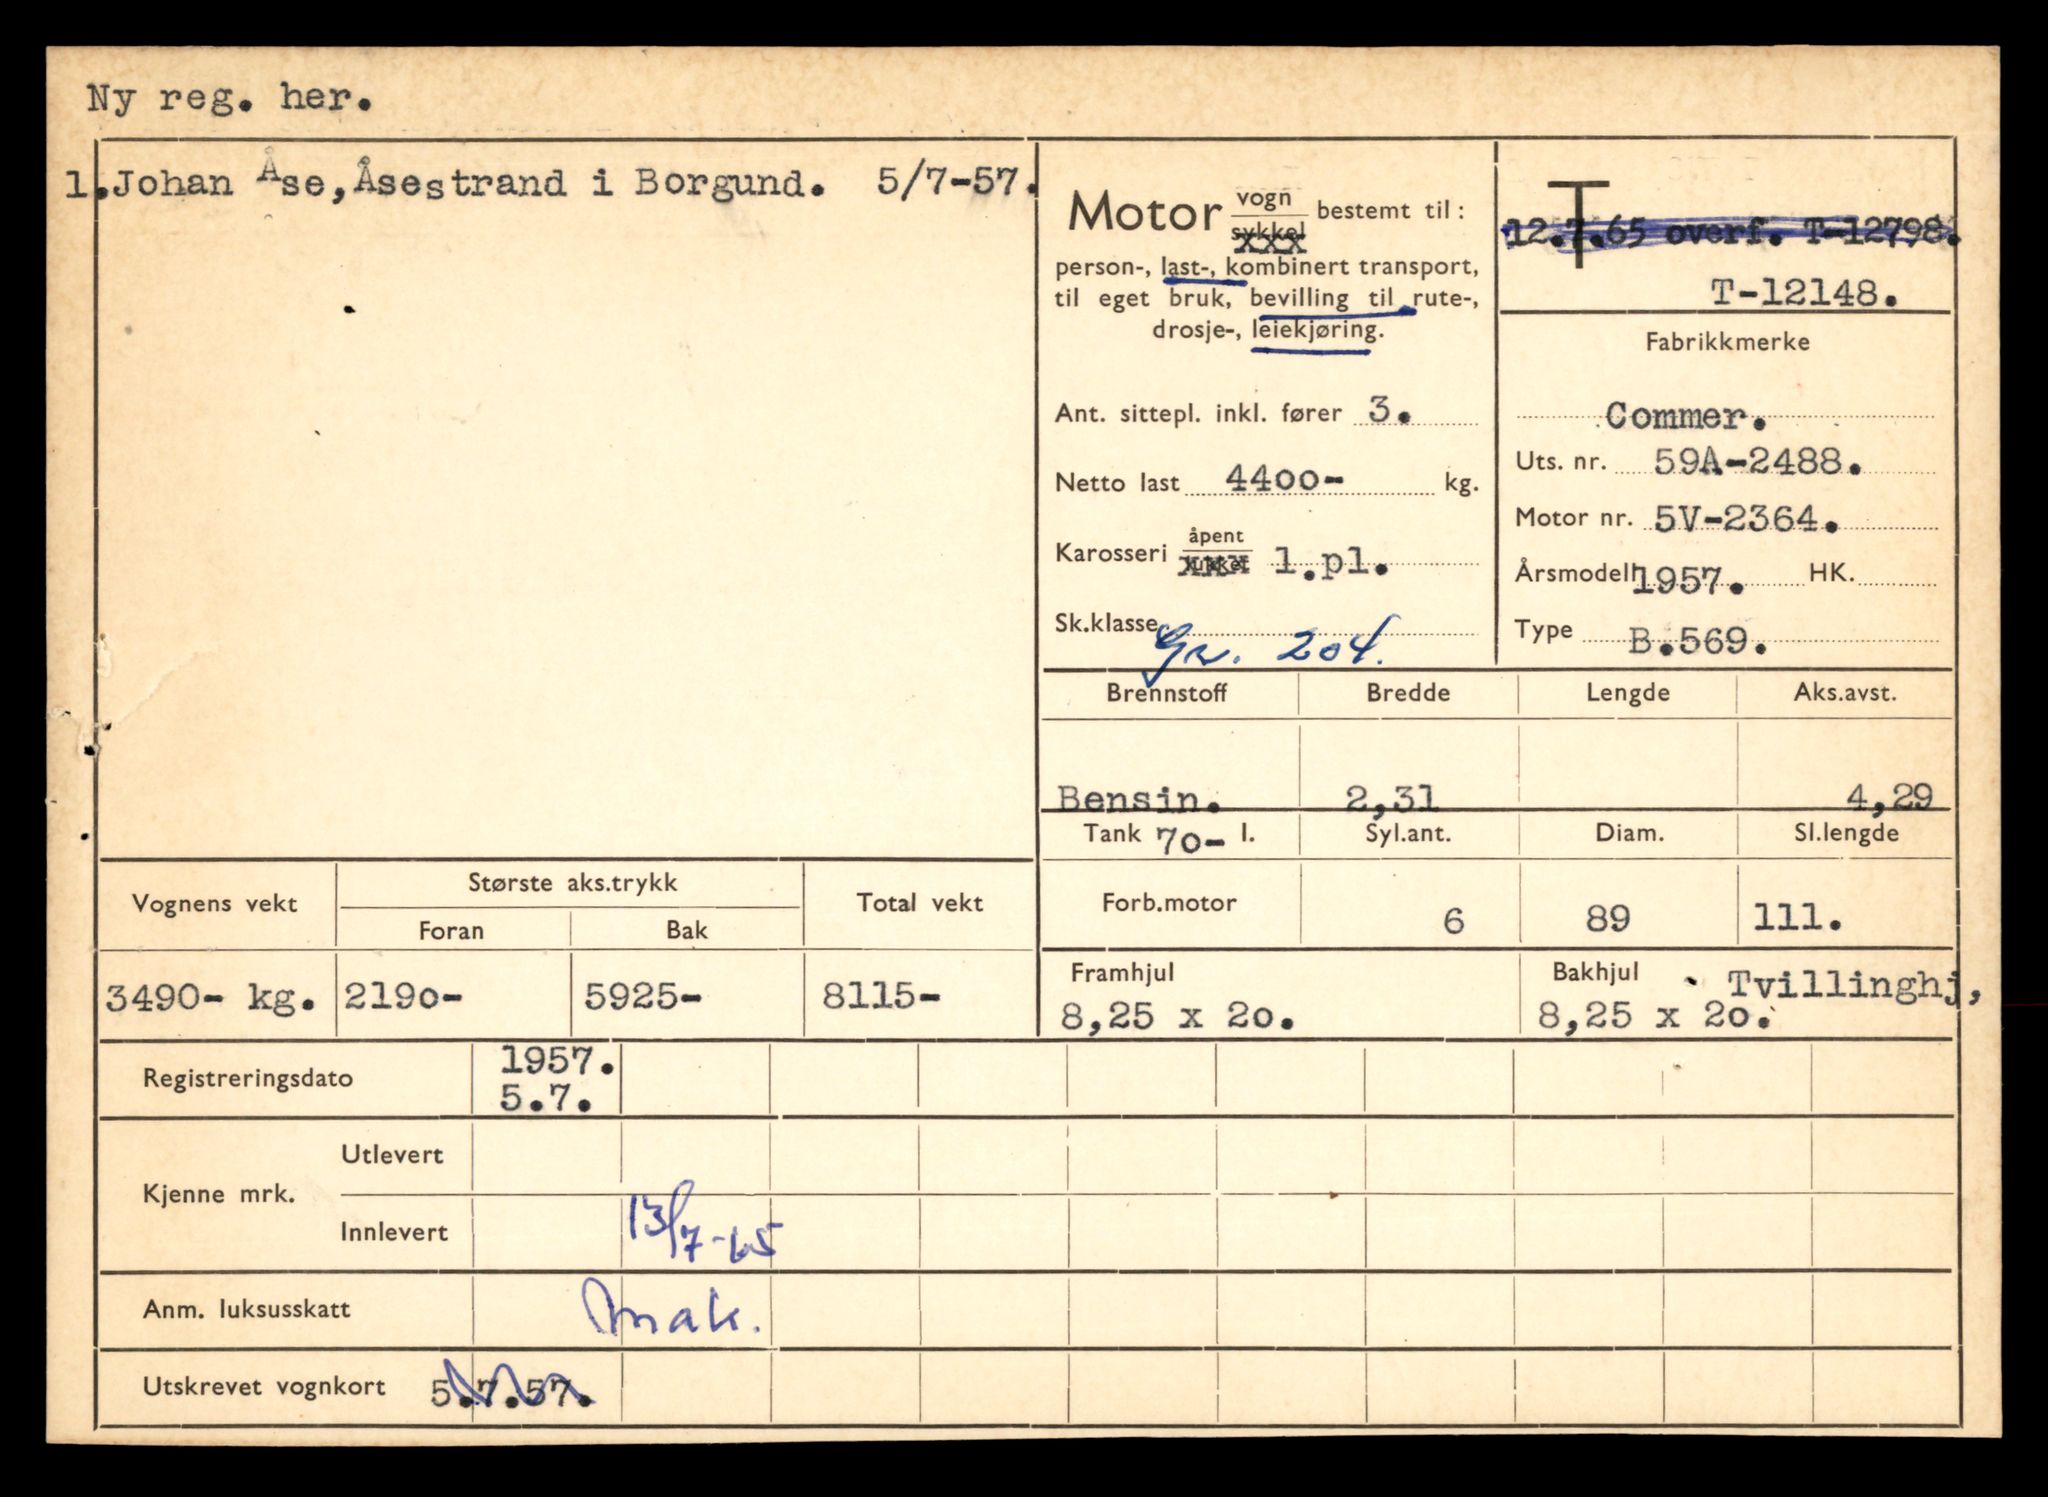 Ny reg. her.
1. Johan Åse, Åsestrand i Borgund. 5/7-57.
Motor vogn sykkel bestemt til:
person-, last-, kombinert transport,
til eget bruk, bevilling til rute-,
drosje-, leiekjøring.
Ant. sittepl. inkl. fører 3.
Netto last 4400- kg.
Karosseri åpent lukket l.pl.
Sk.klasse Gr. 204.
T
12.7.65 overf. T-12798.
T-12148.
Fabrikkmerke
Commer.
Uts. nr. 59A-2488.
Motor nr. 5V-2364.
Årsmodell 1957. HK.
Type B.569.
Brennstoff Bredde Lengde Aks.avst.
Bensin. 2,31 4,29
Tank 70- l. Syl.ant. Diam. Sl.lengde
Forb.motor 6 89 111.
Framhjul Bakhjul Tvillinghj,
8,25 x 20. 8,25 x 20.
Vognens vekt Største aks.trykk Total vekt
Foran Bak
3490- kg. 2190- 5925- 8115-
Registreringsdato 1957.
5.7.
Kjenne mrk. Utlevert
Innlevert 13/7-65
Anm. luksusskatt
Utskrevet vognkort 5.7.57.